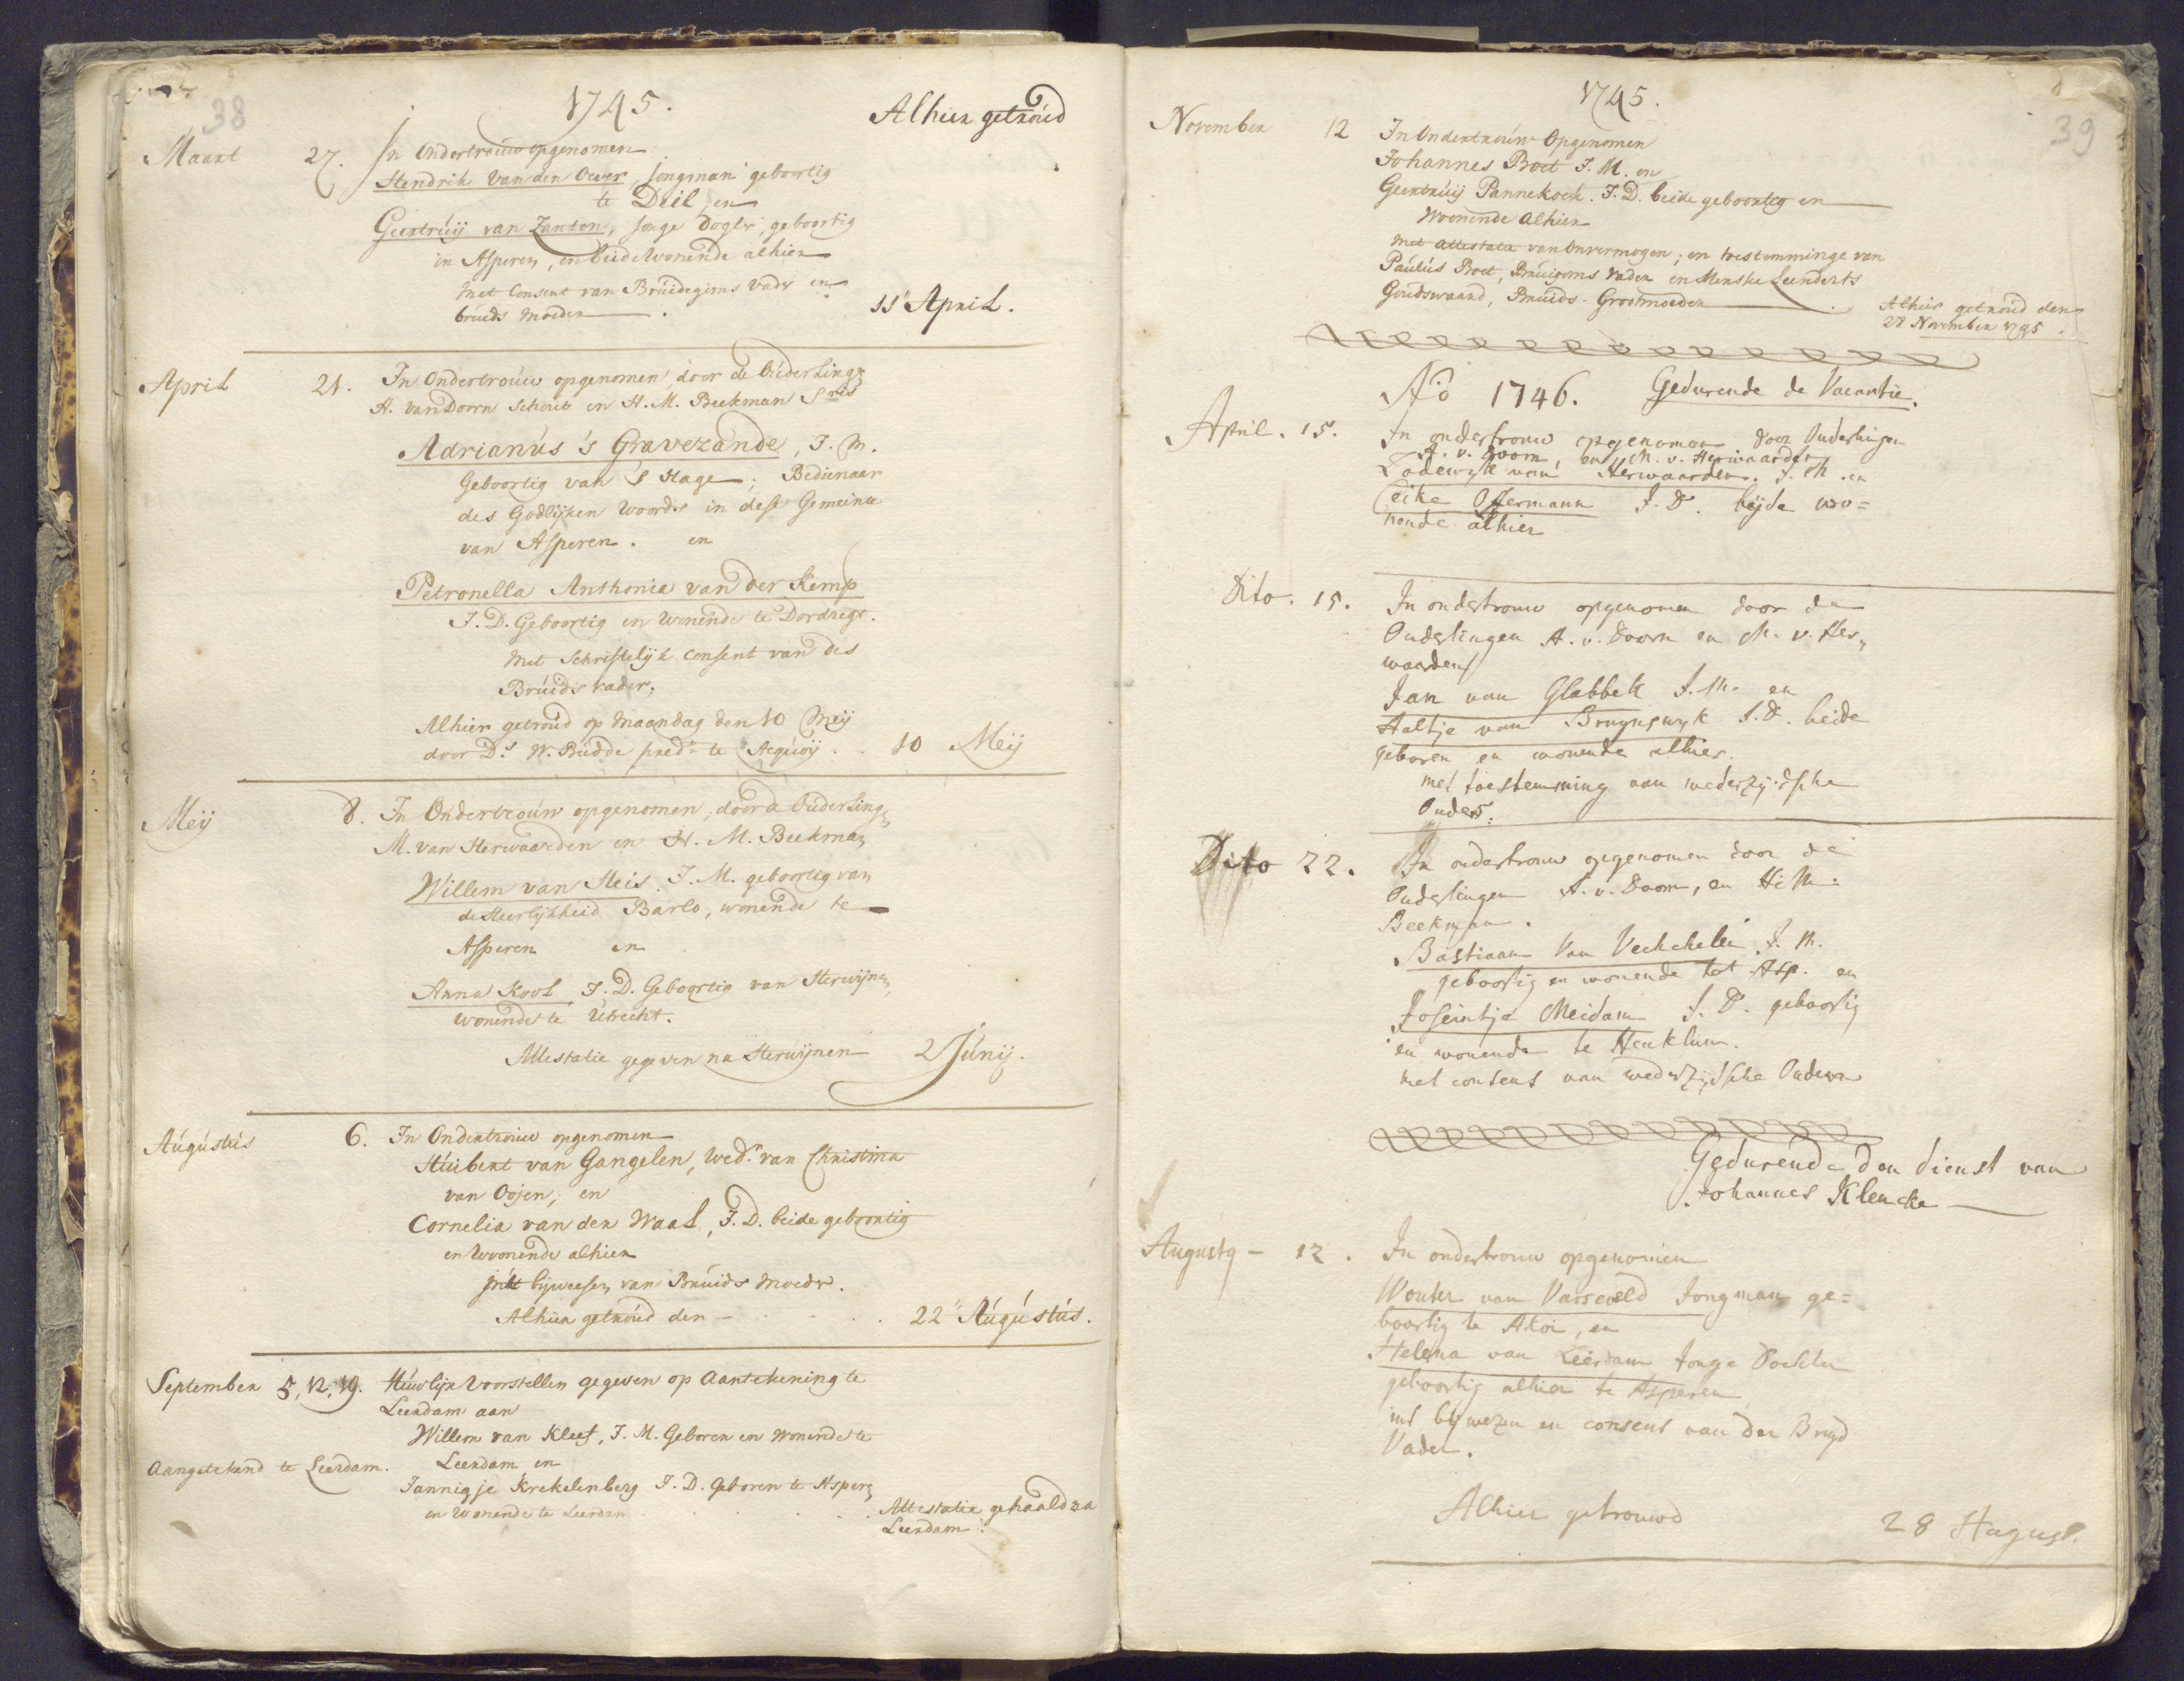 38
1745.
Alhier getroúd
Maart 27. In Ondertroúw opgenomen
Hendrik Van den Oever, jongman geboortig
te Deil, en
Geertrúij van Zanten, jonge dogtr, geboortig
in Asperen, en beide wonende alhier
Met Consent van Brúidegoms Vader en
brúids Moeder.
11 April.
April 21. In Ondertroúw opgenomen, door de Oúderling
A. van Doorn Schout en H. M. Beekman
Adrianús 's Gravezande, J. M.
Geboortig van 's Hage; Bedienaar
des Godlijken Woords in dese Gemeinte
van Asperen. en
Petronella Anthonia van der Kemp
J. D. Geboortig en Wonende te Dordregt.
Met Schriftelijk Consent van des
Brúids vader;
Alhier getroúd op Maandag den 10 Meij
door Ds. W. Búdde pred. te Acquoij . . 10 Meij
Meij 8. In Ondertroúw opgenomen, door de Oúderling
M. van Herwaarden en H. M. Beekman
Willem van Heis, J. M. geboortig van
de Heerlijkheid Barlo, wonende te
Asperen en
Anna Kool J. D. Geboortig van Herwijnen,
wonende te Utrecht.
Attestatie gegeven na Herwijnen 2 Júnij.
Aúgústús 6. In Ondertroúw opgenomen
Húibert van Gangelen, Wedr. van Christina
van Oojen, en
Cornelia van der Waal, J. D. beide geboortig
en Woonende alhier
met bijweesen van Brúids Moeder.
Alhier getroúd den - . . . . 22 Aúgústús.
September 5, 12, 19. Húwlijx Voorstellen gegeven op Aantekening te
Leerdam aan
Willem van Kleef, J. M. Geboren en Wonende te
Aangetekend te Leerdam. Leerdam en
Jannigje Krekelenberg J. D. Geboren te Asperen
en Wonende te Leerdam . . . . Attestatie gehaald na
Leerdam.
1745.
39
November 12 In Ondertroúw Opgenomen
Johannes Boet J. M. en
Geertrúij Pannekoek. J. D. beide geboortig en
Woonende Alhier
Met attestatie van Onvermogen; en toestemminge van
Paúlús Boet, Brúigoms Vader en Menske Leenderts
Goudswaard, Brúids-Grootmoeder.
Alhier getroúd den
28 November 1745.
Ao 1746. Gedurende de Vacantie.
April. 15. In ondertrouw opgenomen door Ouderlingen
A. v. Doorn, en M. v. Herwaarden
Lodewyk van Herwaarden. J. M. en
Ceike Ossermann J. D. beijde wo=
nende alhier
Dito. 15. In ondertrouw opgenomen door de
Ouderlingen A. v. Doorn en M. v. Her„
waarden
Jan van Glabbek J. M. en
Aaltje van Bruynswyk J. D. beide
geboren en wonende alhier.
met toestemming van wederzijdsche
Ouders.
Dito 22. In ondertrouw opgenomen door de
Ouderlingen A. v. Doorn, en H. M.
Beekman.
Bastiaan Van Vechelen J. M.
geboortig en wonende tot Asp. en
Joseintje Meidam J. D. geboortig
en wonende te Heuklum.
met consent van wederzijdsche Ouderen
Gedurende den dienst van
Johannes Klencke
Augusty - 12. In ondertrouw opgenomen
Wouter van Varseveld Jongman ge=
boortig te Akoi, en
Helena van Leerdam Jonge Dochter
geboortig alhier te Asperen
int bijwezen en consent van der Bruyd
Vader.
Alhier getrouwd 28 August.